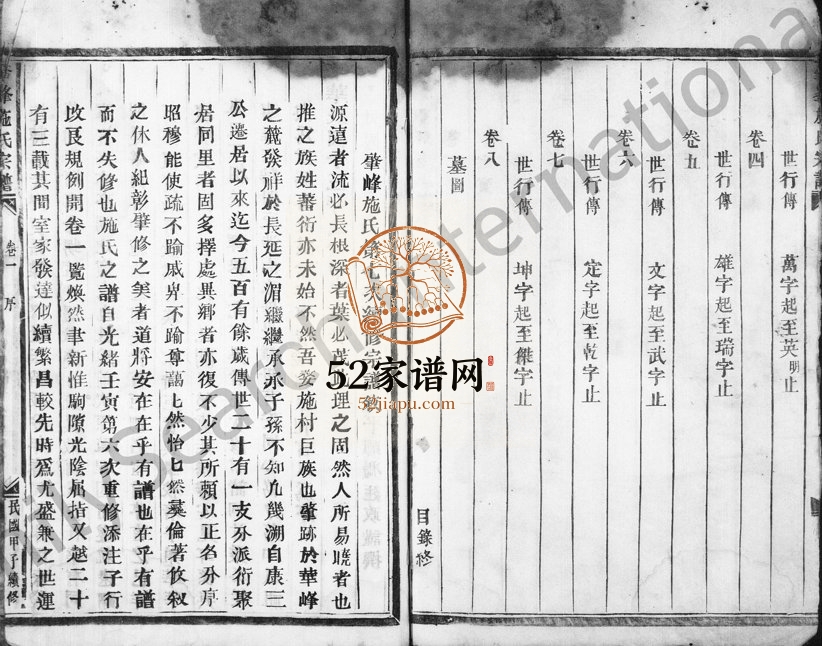 世行傳 萬字起至英明止
卷四
世行傳 雄字起至瑞字止
卷五
世行傳 文字起至武字止
卷六
世行傳 定字起至乾字止
卷七
世行傳 坤字起至傑字止
卷八
墓圖
目錄終
肇峰施氏第七次續修宗譜
源遠者流必長根深者葉必茂理之固然人所易曉者也
推之族姓蕃衍亦未始不然吾婺施村巨族也肇跡於華峰
之麓發祥於長延之湄繼繼承承子孫不知凡幾溯自康三
公遷居以來迄今五百有餘歲傳世二十有一支分派衍聚
居同里者固多擇處異鄉者亦復不少其所賴以正名分序
昭穆能使疏不踰戚卑不踰尊藹匕然怡匕然彝倫著攸叙
之休人紀彰肇修之美者道將安在在乎有譜也在乎有譜
而不失修也施氏之譜自光緒壬寅第六次重修添注子行
改良規例開卷一覽煥然聿新惟駒隙光陰屈指又越二十
有三載其間室家發達似續繁昌較先時爲尤盛兼之世運
峰施氏宗譜
卷一 序
民國甲子續修
52家谱网
52jiapu.com
MySearch International